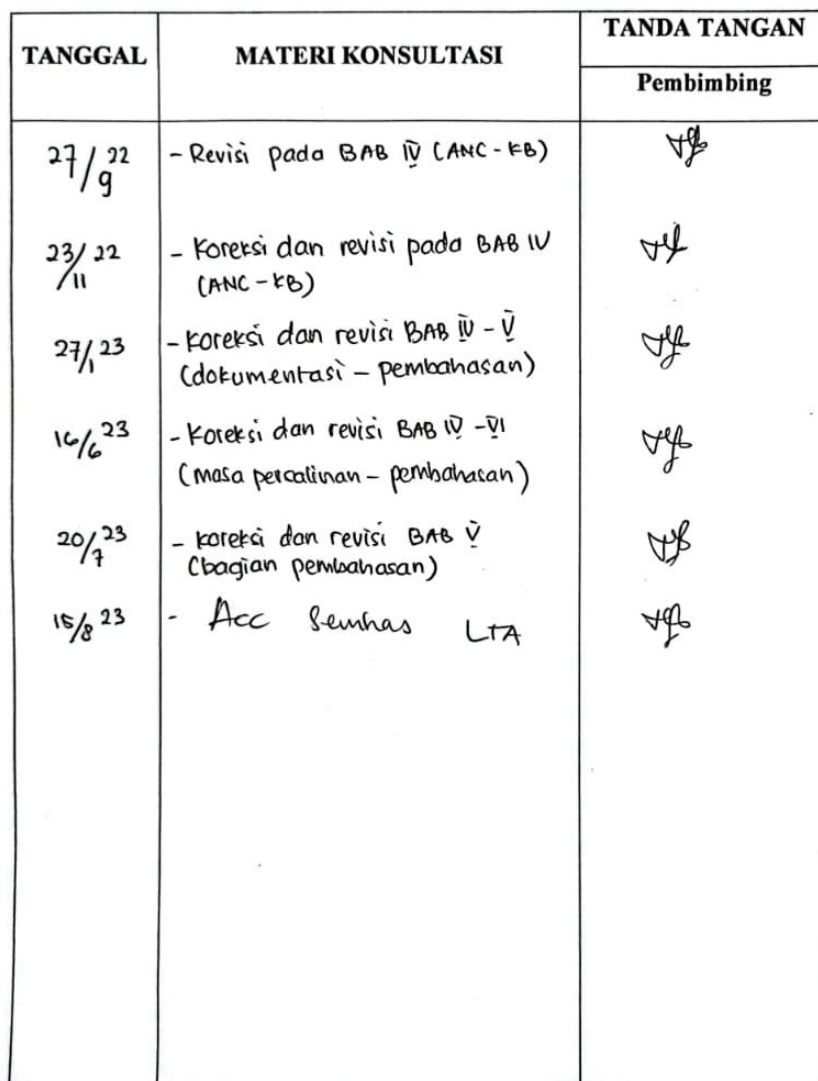 TANGGAL MATERI KONSULTASI TANDA TANGAN
Pembimbing
27/9 22 - Revisi pada BAB IV (ANC - KB)
23/11 22 - Koreksi dan revisi pada BAB IV
(ANC - KB)
27/1 23 - Koreksi dan revisi BAB IV - V
(dokumentasi - pembahasan)
16/6 23 - Koreksi dan revisi BAB IV - VI
(masa percalinan - pembahasan)
20/7 23 - koreksi dan revisi BAB V
(bagian pembahasan)
15/8 23 - Acc Semhas LTA